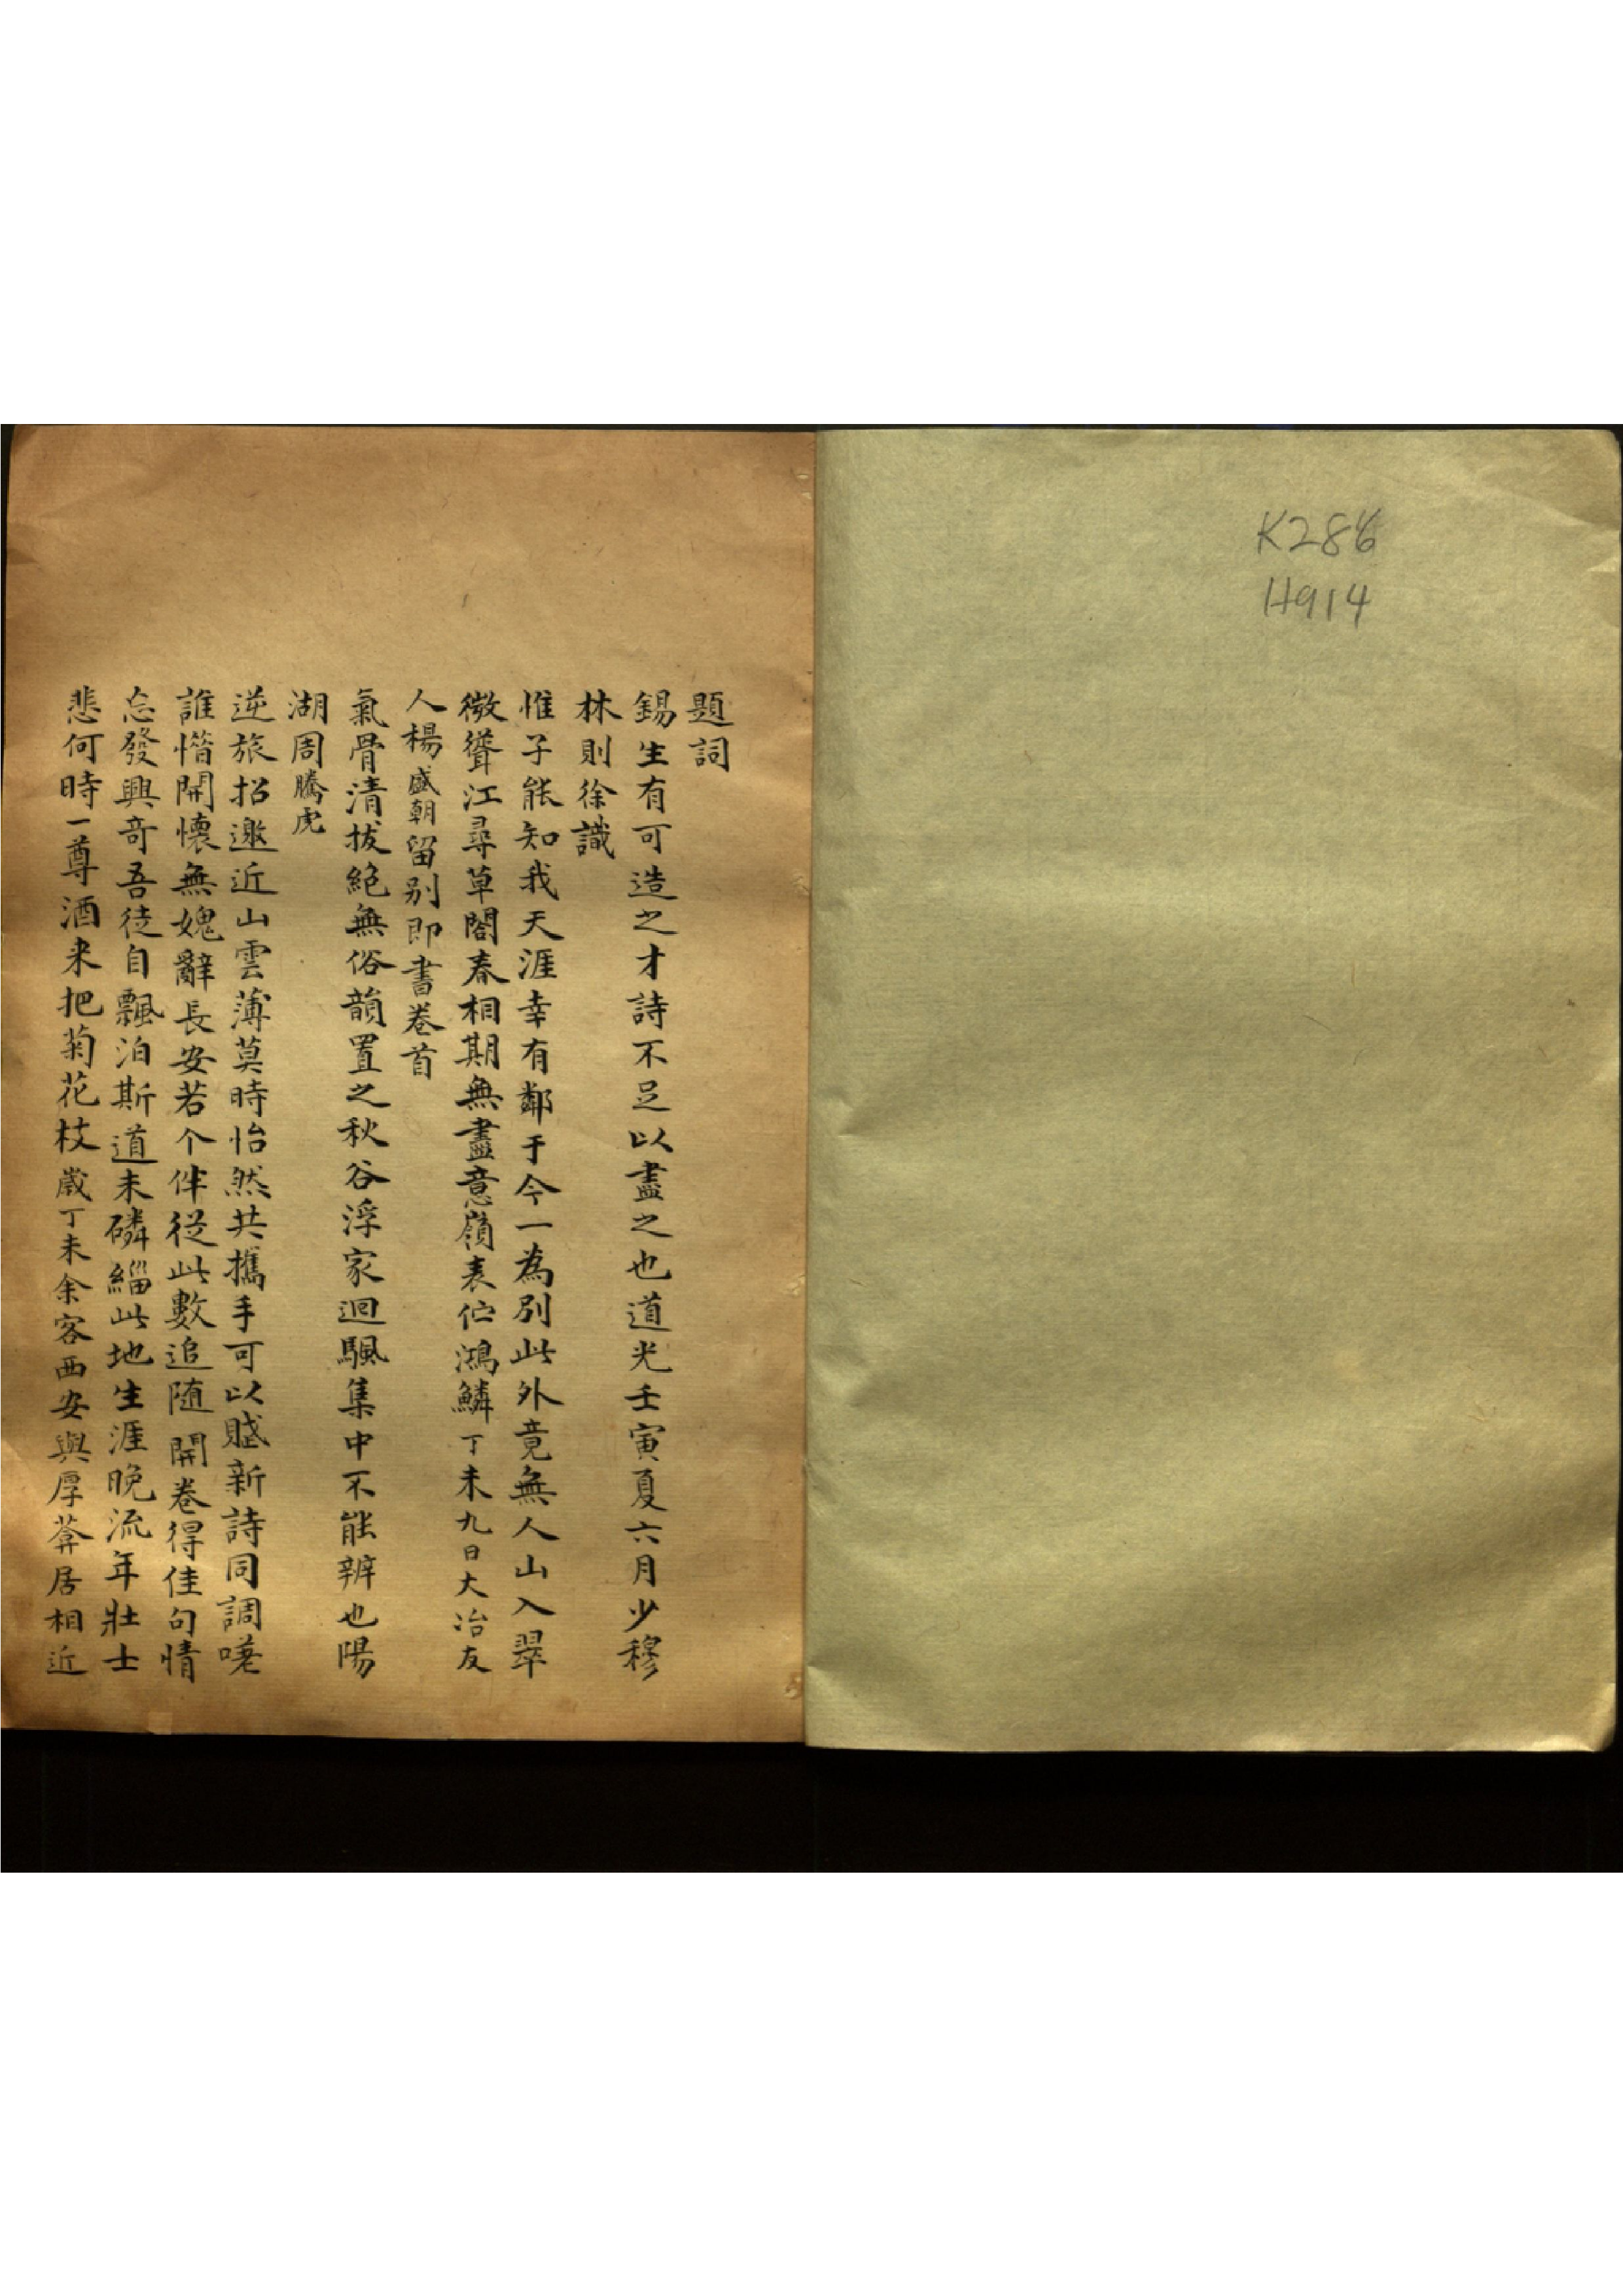 K286
H914
題詞
錫生有可造之才詩不足以盡之也道光壬寅夏六月少穆
林則徐識
惟子能知我天涯幸有鄰于今一為別此外竟無人山入翠
微聳江尋草閣春相期無盡意嶺表伫鴻鱗丁未九日大冶友
人楊盛朝留別即書卷首
氣骨清拔絕無俗韻置之秋谷浮家迴颿集中不能辨也陽
湖周騰虎
逆旅招邀近山雲薄莫時怡然共攜手可以賦新詩同調嘆
誰憯開懷無媿辭長安若个伴從此數追随開卷得佳句情
忘發興奇吾徒自飄泊斯道未磷緇此地生涯晚流年壯士
悲何時一尊酒来把菊花枝歲丁未余客西安與厚葊居相近